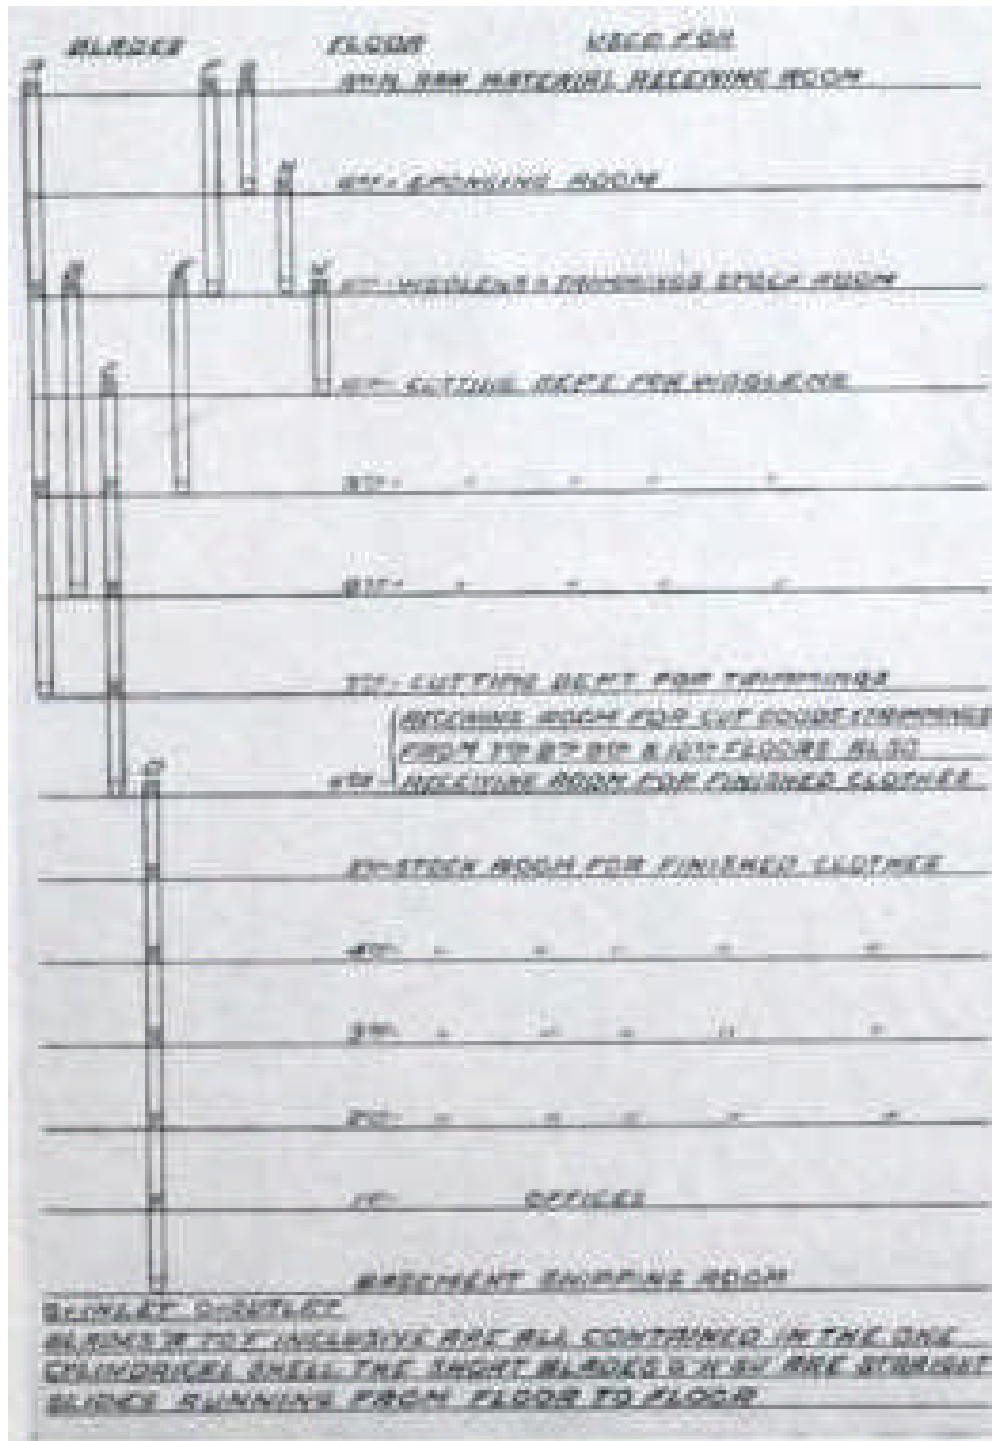 BLADES FLOOR USED FOR
RAW MATERIAL RECEIVING ROOM
SPONGING ROOM
WOOLENS & TRIMMINGS STOCK ROOM
CUTTING DEPT FOR WOOLENS
9TH - " " " "
8TH - " " " "
7TH - CUTTING DEPT FOR TRIMMINGS
RECEIVING ROOM FOR CUT GOODS & TRIMMINGS
FROM 7TH 8TH 9TH & 10TH FLOORS ALSO
6TH - RECEIVING ROOM FOR FINISHED CLOTHES
5TH - STOCK ROOM FOR FINISHED CLOTHES
4TH - " " " " "
3RD - " " " " "
2ND - " " " " "
1ST - OFFICES
BASEMENT SHIPPING ROOM
INLET OUTLET
BLADES A TO F INCLUSIVE ARE ALL CONTAINED IN THE ONE
CYLINDRICAL SHELL THE SHORT BLADES ARE STRAIGHT
SLIDES RUNNING FROM FLOOR TO FLOOR